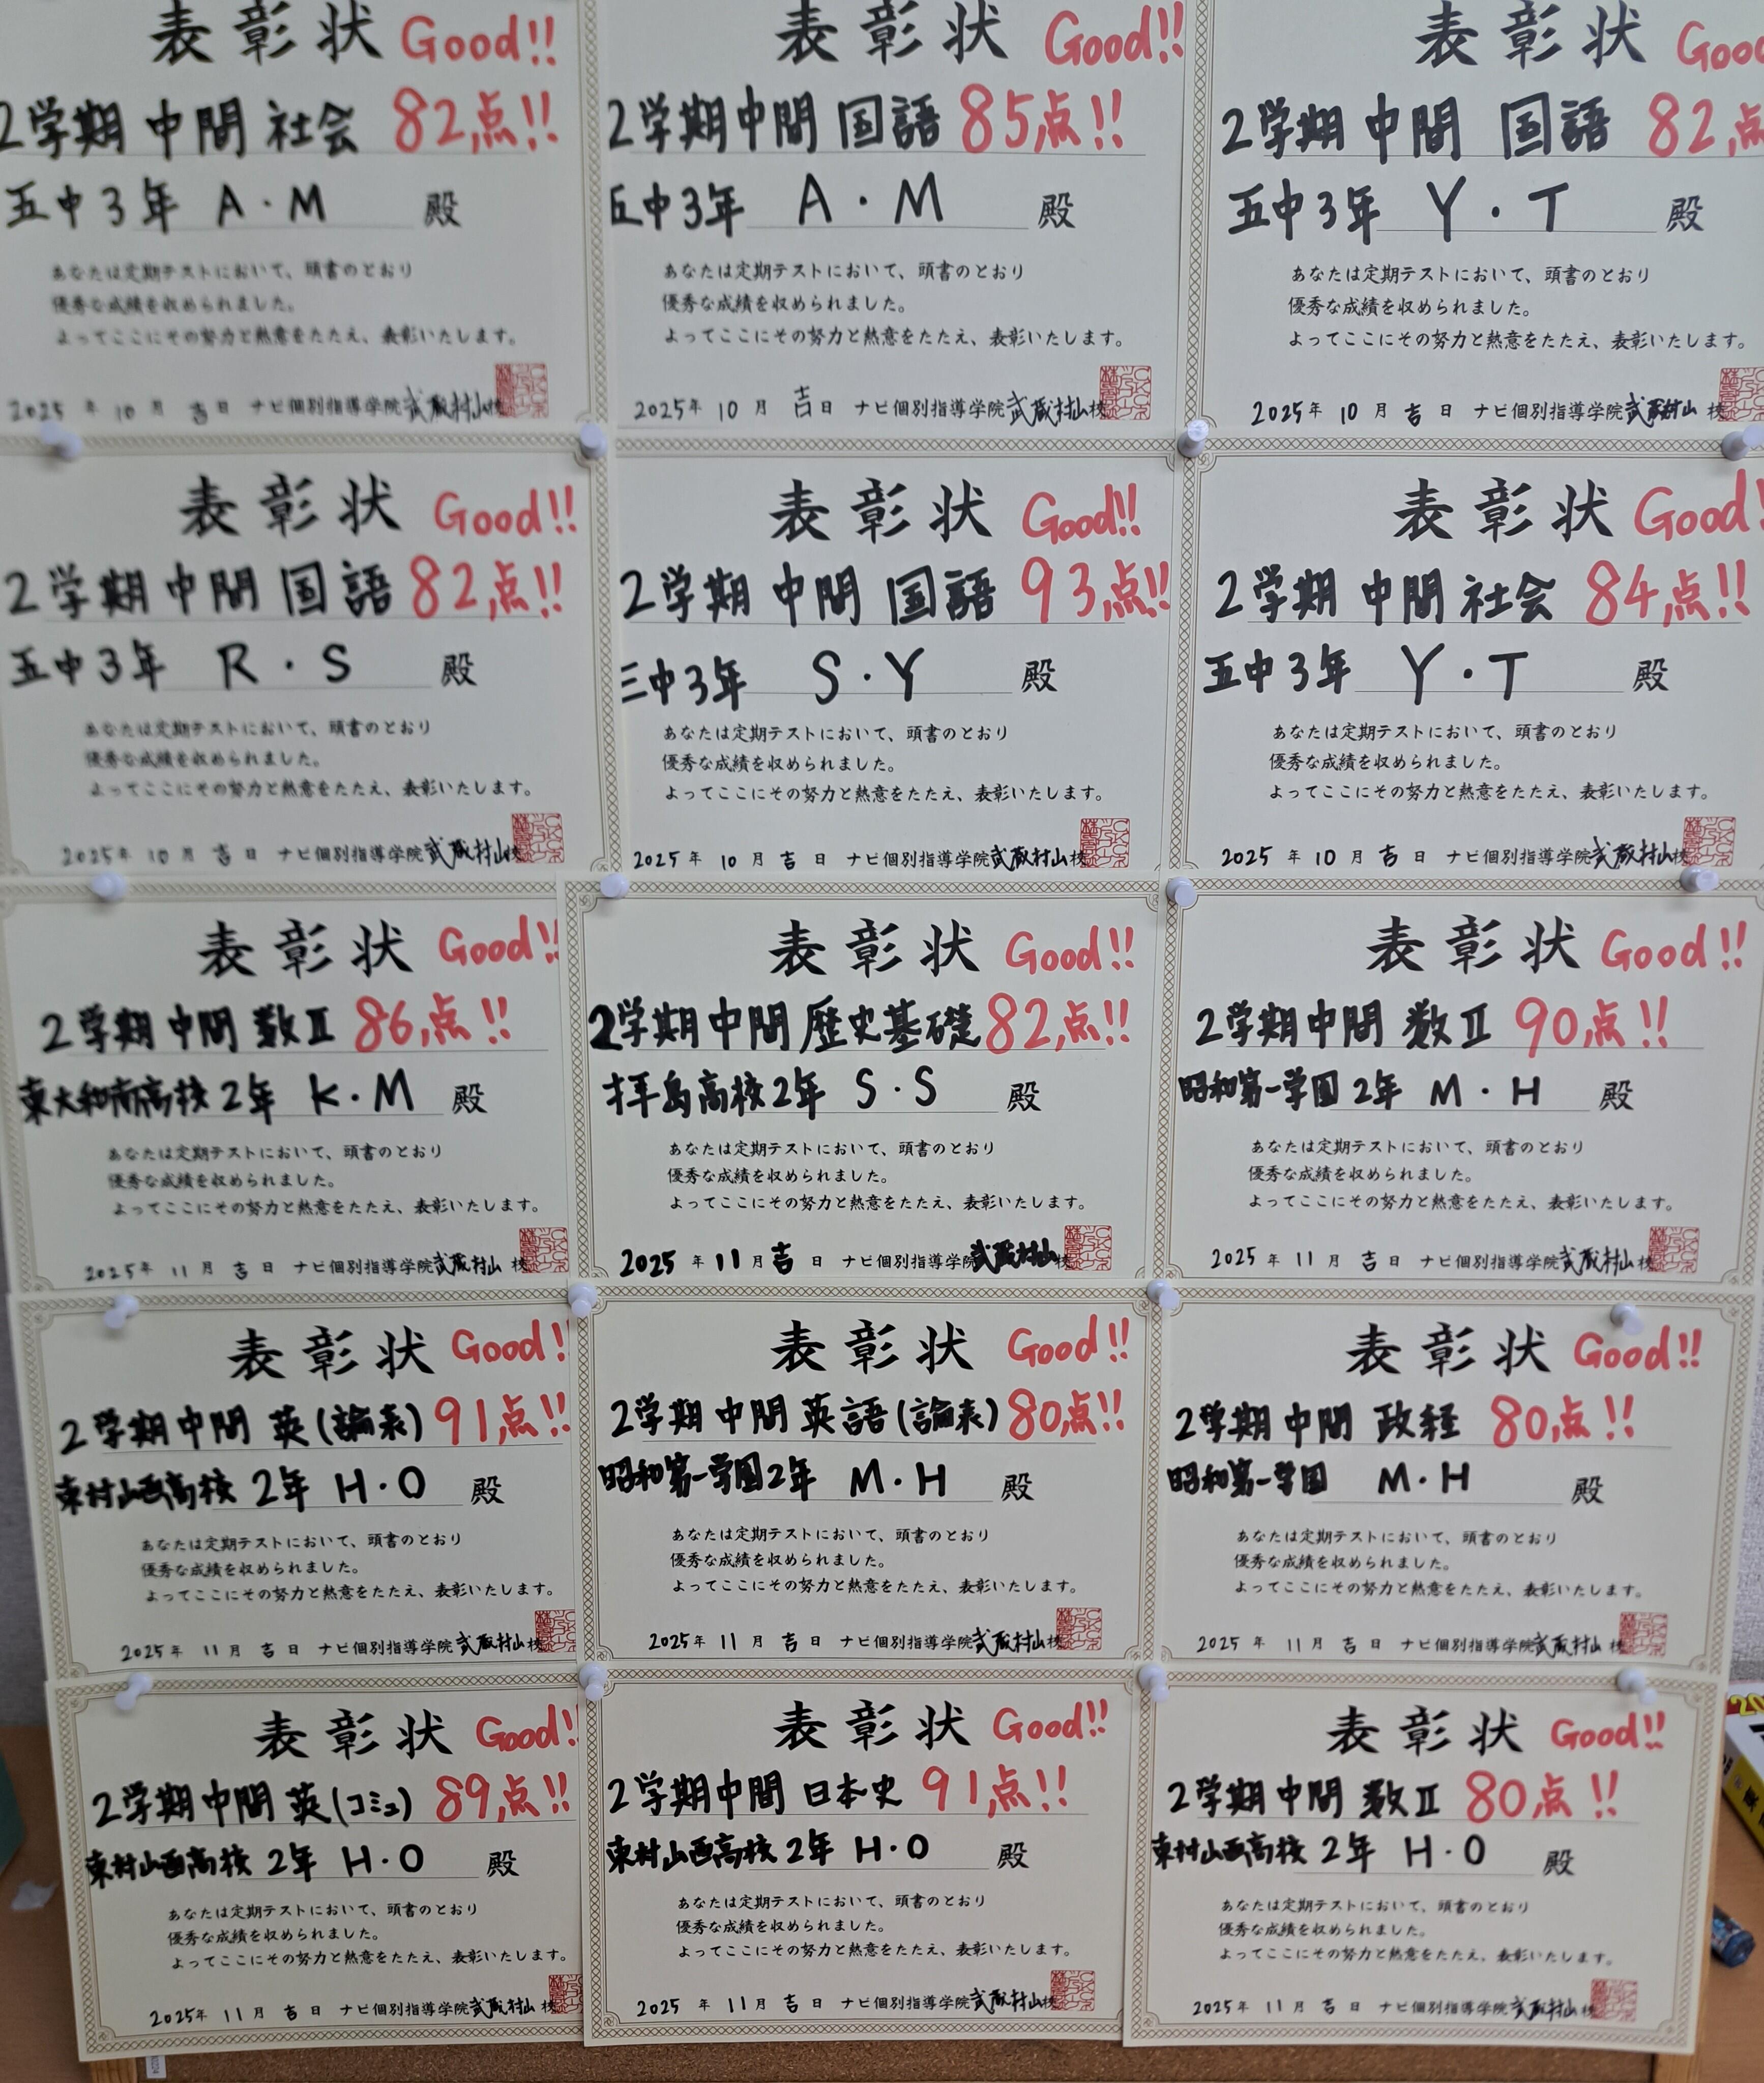 表彰状 Good!!
2学期 中間 社会 82点!!
五中3年 A・M 殿
あなたは定期テストにおいて、頭書のとおり
優秀な成績を収められました。
よってここにその努力と熱意をたたえ、表彰いたします。
2025年10月吉日 ナビ個別指導学院武蔵村山校
表彰状 Good!!
2学期中間 国語 85点!!
五中3年 A・M 殿
あなたは定期テストにおいて、頭書のとおり
優秀な成績を収められました。
よってここにその努力と熱意をたたえ、表彰いたします。
2025年10月吉日 ナビ個別指導学院武蔵村山校
表彰状 Good
2学期 中間 国語 82点
五中3年 Y・T 殿
あなたは定期テストにおいて、頭書のとおり
優秀な成績を収められました。
よってここにその努力と熱意をたたえ、表彰いたします。
2025年10月吉日 ナビ個別指導学院武蔵村山校
表彰状 Good!!
2学期 中間 国語 82点!!
五中3年 R・S 殿
あなたは定期テストにおいて、頭書のとおり
優秀な成績を収められました。
よってここにその努力と熱意をたたえ、表彰いたします。
2025年10月吉日 ナビ個別指導学院武蔵村山校
表彰状 Good!!
2学期 中間 国語 93点!!
三中3年 S・Y 殿
あなたは定期テストにおいて、頭書のとおり
優秀な成績を収められました。
よってここにその努力と熱意をたたえ、表彰いたします。
2025年10月吉日 ナビ個別指導学院武蔵村山校
表彰状 Good!
2学期 中間 社会 84点!!
五中3年 Y・T 殿
あなたは定期テストにおいて、頭書のとおり
優秀な成績を収められました。
よってここにその努力と熱意をたたえ、表彰いたします。
2025年10月吉日 ナビ個別指導学院武蔵村山校
表彰状 Good!!
2学期中間 数Ⅱ 86点!!
東大和南高校2年 K・M 殿
あなたは定期テストにおいて、頭書のとおり
優秀な成績を収められました。
よってここにその努力と熱意をたたえ、表彰いたします。
2025年11月吉日 ナビ個別指導学院武蔵村山校
表彰状 Good!!
2学期中間 歴史基礎82点!!
拝島高校2年 S・S 殿
あなたは定期テストにおいて、頭書のとおり
優秀な成績を収められました。
よってここにその努力と熱意をたたえ、表彰いたします。
2025年11月吉日 ナビ個別指導学院武蔵村山校
表彰状 Good!!
2学期中間 数Ⅱ 90点!!
昭和第一学園2年 M・H 殿
あなたは定期テストにおいて、頭書のとおり
優秀な成績を収められました。
よってここにその努力と熱意をたたえ、表彰いたします。
2025年11月吉日 ナビ個別指導学院武蔵村山校
表彰状 Good!
2学期中間 英(論表)91点!!
東村山西高校 2年 H・O 殿
あなたは定期テストにおいて、頭書のとおり
優秀な成績を収められました。
よってここにその努力と熱意をたたえ、表彰いたします。
2025年11月吉日 ナビ個別指導学院武蔵村山校
表彰状 Good!!
2学期中間 英語(論表)80点!!
昭和第一学園2年 M・H 殿
あなたは定期テストにおいて、頭書のとおり
優秀な成績を収められました。
よってここにその努力と熱意をたたえ、表彰いたします。
2025年11月吉日 ナビ個別指導学院武蔵村山校
表彰状 Good!!
2学期中間 政経 80点!!
昭和第一学園 M・H 殿
あなたは定期テストにおいて、頭書のとおり
優秀な成績を収められました。
よってここにその努力と熱意をたたえ、表彰いたします。
2025年11月吉日 ナビ個別指導学院武蔵村山校
表彰状 Good!!
2学期中間 英(コミュ) 89点!!
東村山西高校 2年 H・O 殿
あなたは定期テストにおいて、頭書のとおり
優秀な成績を収められました。
よってここにその努力と熱意をたたえ、表彰いたします。
2025年11月吉日 ナビ個別指導学院武蔵村山校
表彰状 Good!!
2学期中間 日本史 91点!!
東村山西高校 2年 H・O 殿
あなたは定期テストにおいて、頭書のとおり
優秀な成績を収められました。
よってここにその努力と熱意をたたえ、表彰いたします。
2025年11月吉日 ナビ個別指導学院武蔵村山校
表彰状 Good!!
2学期中間 数Ⅱ 80点!!
東村山西高校 2年 H・O 殿
あなたは定期テストにおいて、頭書のとおり
優秀な成績を収められました。
よってここにその努力と熱意をたたえ、表彰いたします。
2025年11月吉日 ナビ個別指導学院武蔵村山校